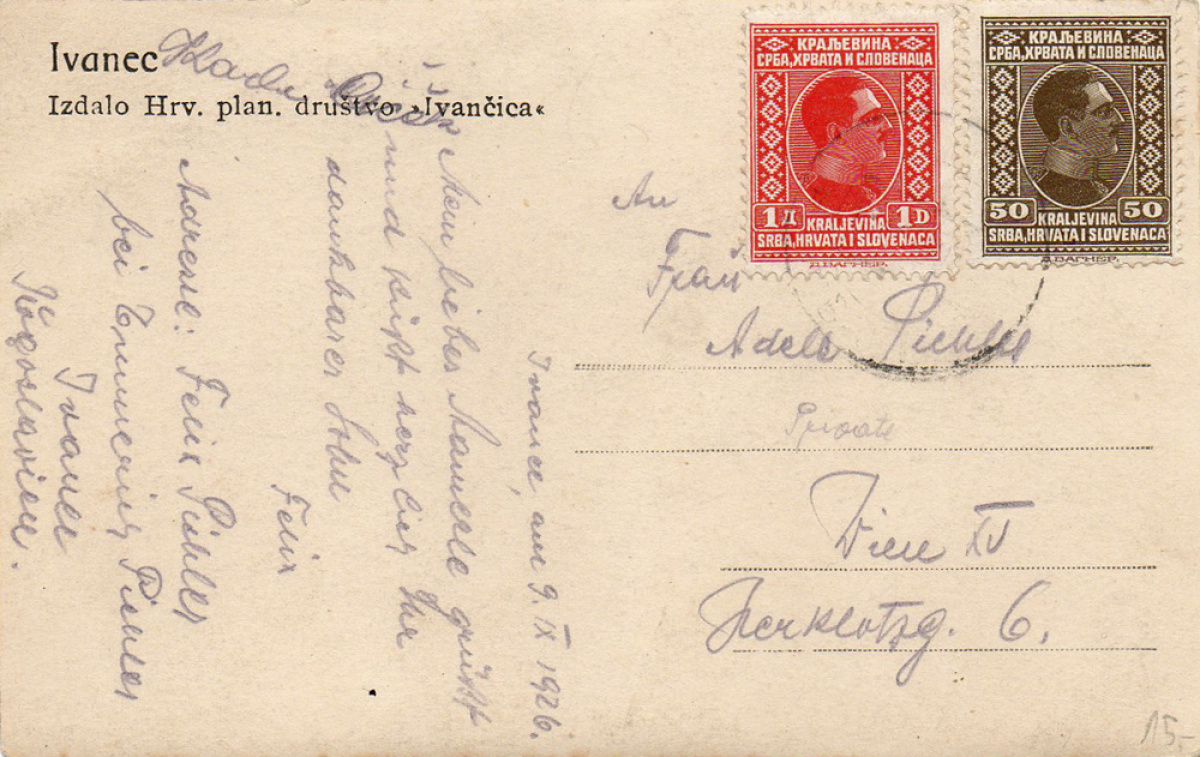 Ivanec
Izdalo Hrv. plan. društvo »Ivančica«
КРАЉЕВИНА
СРБА, ХРВАТА И СЛОВЕНАЦА
1Д 1D
KRALJEVINA
SRBA, HRVATA I SLOVENACA
Д.ВАГНЕР.
КРАЉЕВИНА
СРБА, ХРВАТА И СЛОВЕНАЦА
50 50
KRALJEVINA
SRBA, HRVATA I SLOVENACA
Д.ВАГНЕР.
Ivanec, am 9. IX 1926.
Mein liebes Mamerle grüßt
und küßt herzlich Ihr
dankbarer Sohn
Felix
Adresse: Felix Pichler
bei Pichler
Ivanec
Jugoslavien.
An
Frau
Adele Pichler
Private
Wien XV
Herklotzg. 6.
15-